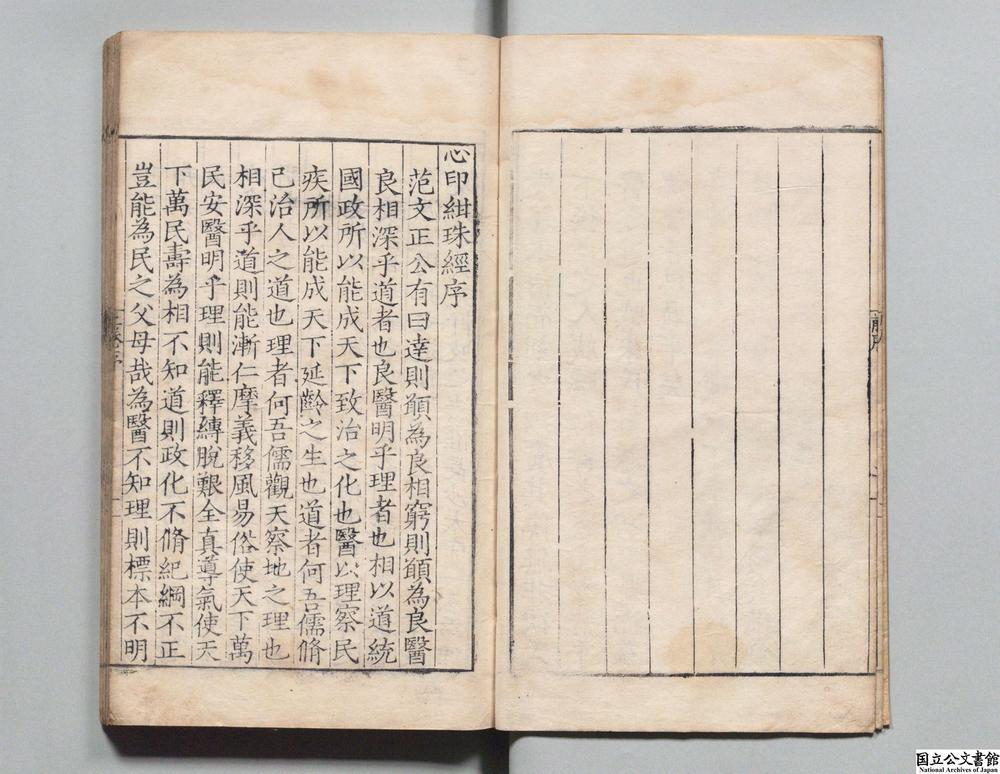 心印紺珠經序
范文正公有曰達則願為良相窮則願為良醫
良相深乎道者也良醫明乎理者也相以道統
國政所以能成天下致治之化也醫以理察民
疾所以能成天下延齡之生也道者何吾儒脩
己治人之道也理者何吾儒觀天察地之理也
相深乎道則能漸仁摩義移風易俗使天下萬
民安醫明乎理則能釋縛脫艱全真導氣使天
下萬民壽為相不知道則政化不脩紀綱不正
豈能為民之父母哉為醫不知理則標本不明
国立公文書館
National Archives of Japan